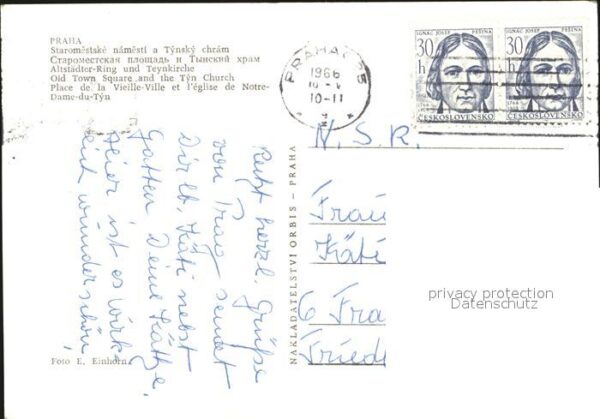 PRAHA
Staroměstské náměstí a Týnský chrám
Староместская площадь и Тынский храм
Altstädter-Ring und Teynkirche
Old Town Square and the Týn Church
Place de la Vieille-Ville et l'église de Notre-
Dame-du-Týn
PRAHA
1966
10-11
IGNÁC JOSEF PEŠINA
30
h
ČESKOSLOVENSKO
IGNÁC JOSEF PEŠINA
30
h
ČESKOSLOVENSKO
Recht herzl. Grüße
von Prag sendet
Dir lb. Käti nebst
Gatten Deine
Hier ist es wirk-
wunderschön
NAKLADATELSTVÍ ORBIS - PRAHA
N. S. R.
Frau
Käti
6 Fra
Fried
privacy protection
Datenschutz
Foto E. Einhorn